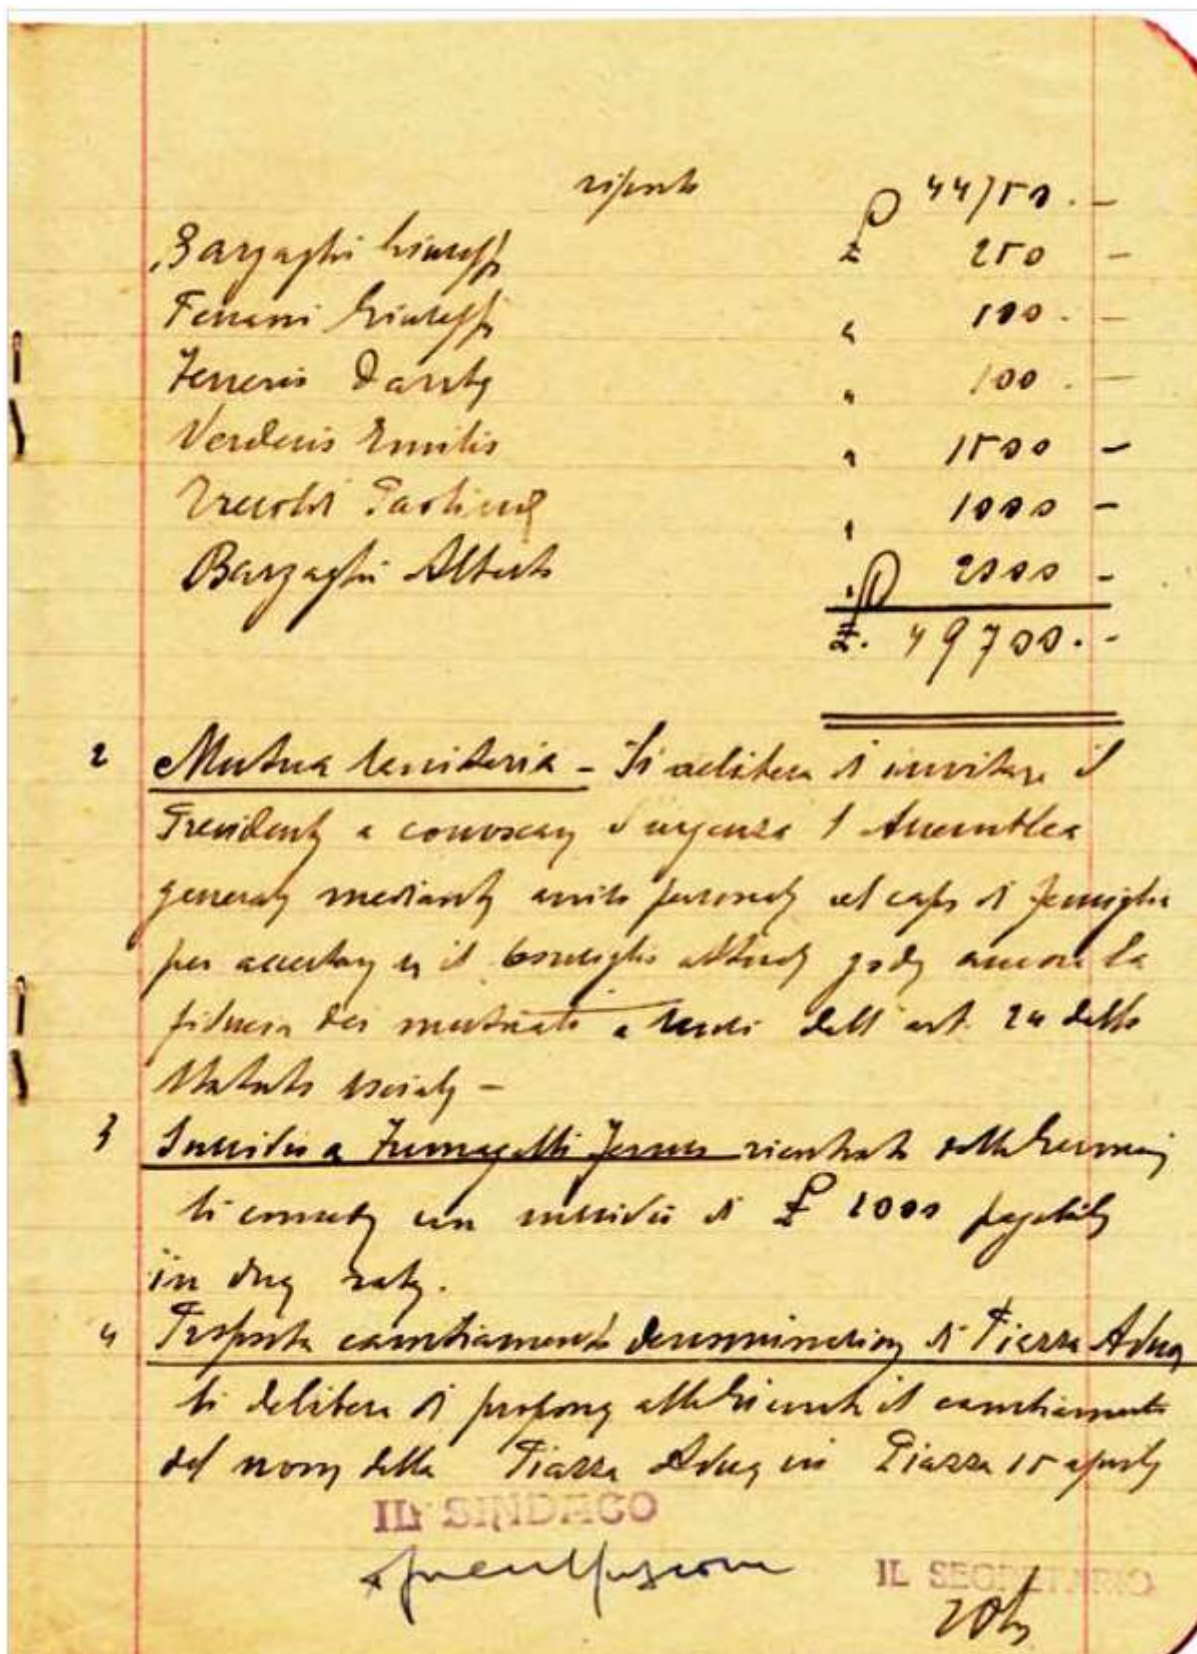 riporto £ 44750.-
Barzaghi Giuseppe £ 250 -
Ferrario Giuseppe " 100.-
Ferrerio Dante " 100.-
Verderio Emilio " 1500 -
Paolina " 1000 -
Barzaghi Alberto " 2000 -
£. 49700.-
2 Mutua Sanitaria - Si delibera di invitare il
Presidente a convocare d'urgenza l'Assemblea
generale mediante invito personale al capo di famiglia
per accertare se il Consiglio attuale gode ancora la
fiducia dei mutuati a sensi dell'art. 24 dello
Statuto sociale -
3 Sussidio a Fumagalli rientrato dalla Germania
Si concede un sussidio di £ 1000 pagabile
in due rate.
4 Proposta cambiamento denominazione di Piazza Adua
Si delibera di proporre alla Giunta il cambiamento
del nome della Piazza Adua in Piazza 25 aprile
IL SINDACO
IL SEGRETARIO